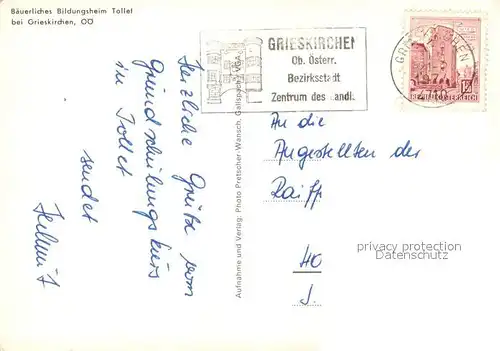 Bäuerliches Bildungsheim Tollet
bei Grieskirchen, OÖ
GRIESKIRCHEN
Ob. Österr.
Bezirksstadt
Zentrum des Landl.
GRIESKIRCHEN
REPUBLIK ÖSTERREICH
Herzliche Grüße vom
Grundschulungskurs
in Tollet
sendet
Helmut
Aufnahme und Verlag: Photo Pretscher-Wansch, Gallspach
An die
Angestellten der
Raiff
40
J.
privacy protection
Datenschutz